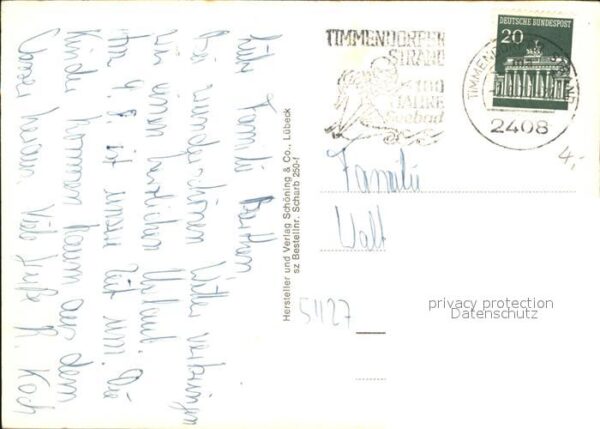 TIMMENDORFER
STRAND
100
JAHRE
Seebad
DEUTSCHE BUNDESPOST
20
TIMMENDORFER
2408
4,-
Familie
Walt
5427
privacy protection
Datenschutz
Hersteller und Verlag Schöning & Co., Lübeck
sz Bestellnr. Scharb 250-f
Liebe Familie
Bei wunderschönem Wetter verbringen
wir einen herrlichen Urlaub. Die
4. 8. ist unsere Zeit um.
Kinder kommen kaum aus dem
heraus. Viele Grüße R. Koch